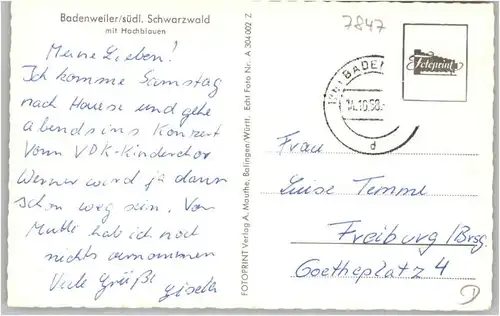 Badenweiler/südl. Schwarzwald
mit Hochblauen
Meine Lieben!
Ich komme Samstag
nach Hause und gehe
abends ins Konzert
vom VDK-Kinderchor
Werner wird ja dann
schon weg sein. Von
Mutti hab ich noch
nichts vernommen
Viele Grüße
Gisela
FOTOPRINT Verlag A. Mauthe, Balingen/Württ. Echt Foto Nr. A 304 002 Z
7847
BADEN
10.58.
d
Teleprint
Frau
Luise Temme
Freiburg/Brsg.
Goetheplatz 4